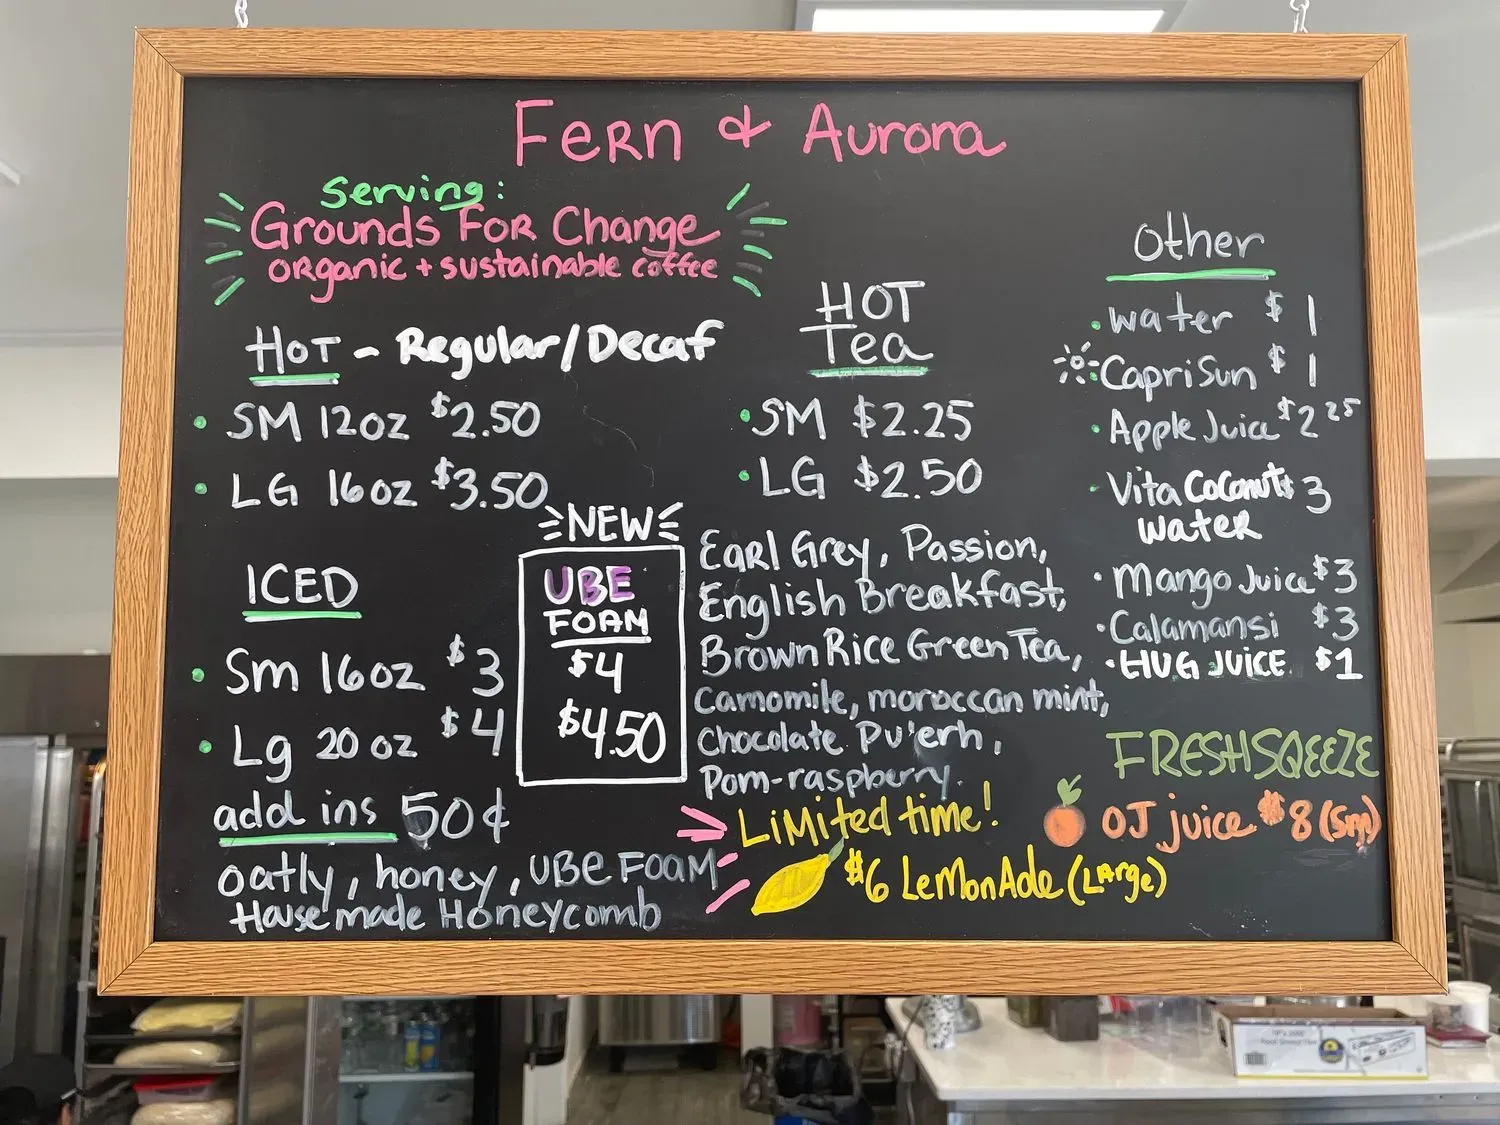 Fern & Aurora
Serving:
Grounds For Change
organic + sustainable coffee
HOT - Regular/Decaf
SM 12oz $2.50
LG 16oz $3.50
ICED
Sm 16oz $3
Lg 20oz $4
NEW
UBE
FOAM
$4
$4.50
add ins 50¢
oatly, honey, UBE FOAM
House made Honeycomb
HOT
Tea
SM $2.25
LG $2.50
Earl Grey, Passion,
English Breakfast,
Brown Rice Green Tea,
Camomile, moroccan mint,
Chocolate Pu'erh,
Pom-raspberry.
Limited time!
$6 LemonAde (Large)
Other
water $1
Capri Sun $1
Apple Juice $2 25
Vita Coconut $3
Water
Mango Juice $3
Calamansi $3
HUG JUICE $1
FRESH SQEEZE
OJ juice $8 (Sm)